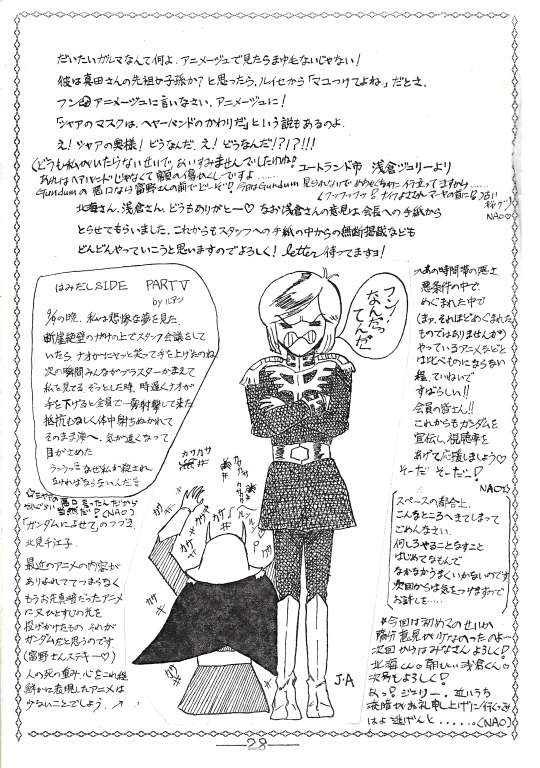 だいたいガルマなんて何よ、アニメージュで見たらまゆ毛ないじゃない！
彼は真田さんの先祖か子孫か？と思ったら、ルイセから「マユつけてよね」だとさ。
フン アニメージュに言いなさい、アニメージュに！
「シャアのマスクは、ヘヤーバンドのかわりだ」という説もあるのよ。
え！シャアの奥様！どうなんだ、え！どうなんだ!?!?!!!
ユートランド市 浅倉ジュリーより
NAO
北海さん、浅倉さん、どうもありがとー♡ なお浅倉さんの意見は会長への手紙から
とらせてもらいました。これからもスタッフへの手紙の中からの無断掲載なども
どんどんやっていこうと思いますのでよろしく！letter待ってますヨ！
はみだしSIDE PARTV
by ルアン
の晩、私は悲惨な夢を見た。
断崖絶壁のがけの上でスタッフ会議をして
いたら ナオがニヤッと笑って手を上げたのね
次の瞬間みんながブラスターかまえて
私を見てる ぞっとした時、時遅くナオが
手を下げると全員で一斉射撃して来た
抵抗もなしく体中射ちぬかれて
そのまま海へ、気が遠くなって
目がさめた
なぜ私が殺され
なければならないんだ
悪口言ったんだから
当然だ！(NAO)
「ガンダムによせて」のつづき
北見千江子
最近のアニメの内容が
ありふれててつまらなく
もうお先真暗だったアニメ
に又ひとすじの光を
投げかけたもの、それが
ガンダムだと思うのです
(富野さんステキー♡)
人の死の重み、心をこれ程
鮮かに表現したアニメは
少ないことでしょう。
フン！
なんだっ
てんだ
カサカサ
カサカサ
J・A
あの時間帯の悪さ、
悪条件の中で、
めぐまれた中で
(まァ、それほどめぐまれた
ものではありませんが)
やっているアニメなどと
は比べものにならない
程、ていねいで
すばらしい!!
会員の皆さん!!
これからもガンダムを
宣伝し、視聴率を
あげて応援しましょう♡
そーだ そーだー！
NAO
スペースの都合上、
こんなところへきてしまって
ごめんなさい。
何しろやることなすこと
はじめてなもんで
なかなかうまくいかないのです
次回からは気をつけますので
お許しを……
*今回は初めてのせいか
随分意見が少なかったのよー
次回からはみなさんよろしく！
次号もよろしく！
あっ！ジュリー。近いうち
はよ逃げんと......(NAO)
28